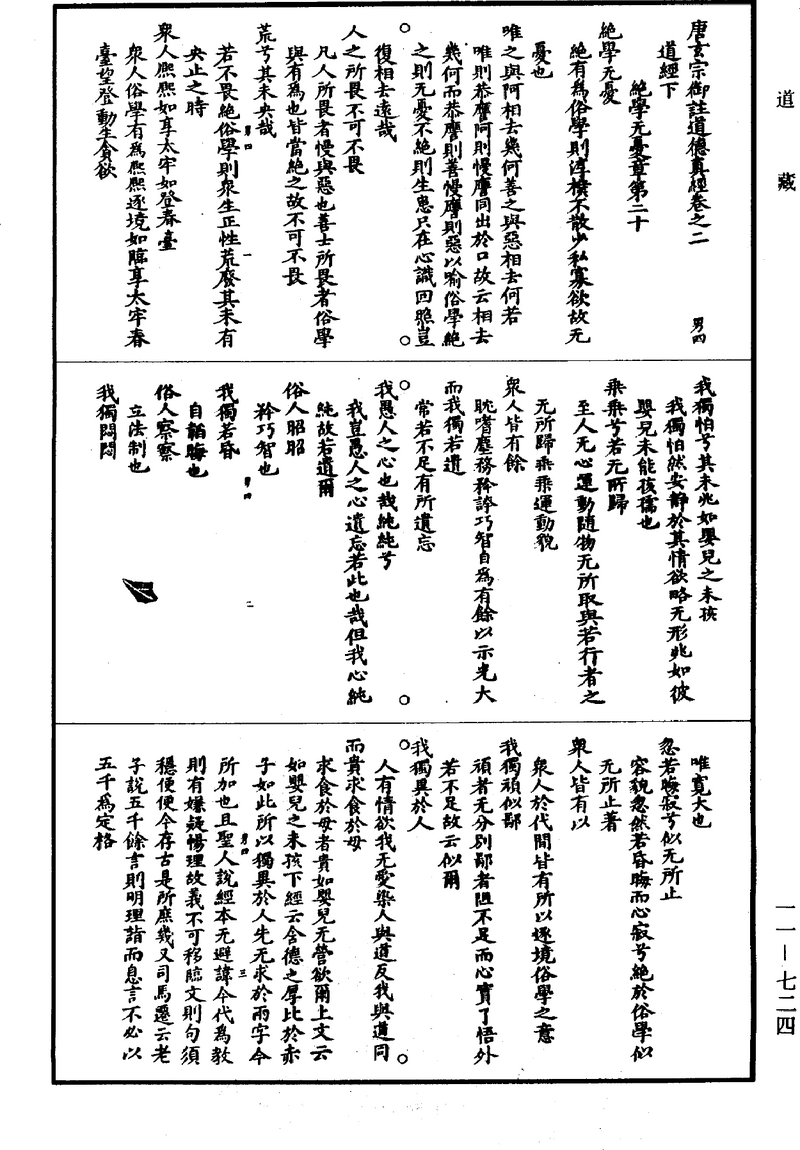 道藏
唐玄宗御註道德真經卷之二 男四
道經下
絕學无憂章第二十
絕學无憂
絕有為俗學則淳樸不散少私寡欲故无
憂也
唯之與阿相去幾何善之與惡相去何若
唯則恭譍阿則慢譍同出於口故云相去
幾何而恭譍則善慢譍則惡以喻俗學絕
之則无憂不絕則生患只在心識回照豈
復相去遠哉
人之所畏不可不畏
凡人所畏者慢與惡也善士所畏者俗學
與有為也皆當絕之故不可不畏
荒兮其未央哉
男四 一
若不畏絕俗學則衆生正性荒廢其未有
央止之時
衆人熙熙如享太牢如登春臺
衆人俗學有為熙熙逐境如臨享太牢春
臺望登動生貪欲
我獨怕兮其未兆如嬰兒之未孩
我獨怕然安靜於其情欲略无形兆如彼
嬰兒未能孩孺也
乘乘兮若无所歸
至人无心運動隨物无所取與若行者之
无所歸乘乘運動貌
衆人皆有餘
耽嗜塵務矜誇巧智自為有餘以示光大
而我獨若遺
常若不足有所遺忘
我愚人之心也哉純純兮
我豈愚人之心遺忘若此也哉但我心純
純故若遺爾
俗人昭昭
矜巧智也
男四 二
我獨若昏
自韜晦也
俗人察察
立法制也
我獨悶悶
唯寬大也
忽若晦寂兮似无所止
容貌忽然若昏晦而心寂兮絕於俗學似
无所止著
衆人皆有以
衆人於代間皆有所以逐境俗學之意
我獨頑似鄙
頑者无分別鄙者陋不足而心實了悟外
若不足故云似爾
我獨異於人
人有情欲我无愛染人與道反我與道同
而貴求食於母
求食於母者貴如嬰兒无營欲爾上文云
如嬰兒之未孩下經云含德之厚比於赤
子如此所以獨異於人先无求於兩字今
男四 三
所加也且聖人說經本无避諱今代為教
則有嫌疑暢理故義不可移臨文則句須
穩便便今存古是所庶幾又司馬遷云老
子說五千餘言則明理詣而息言不必以
五千為定格
一一—七二四